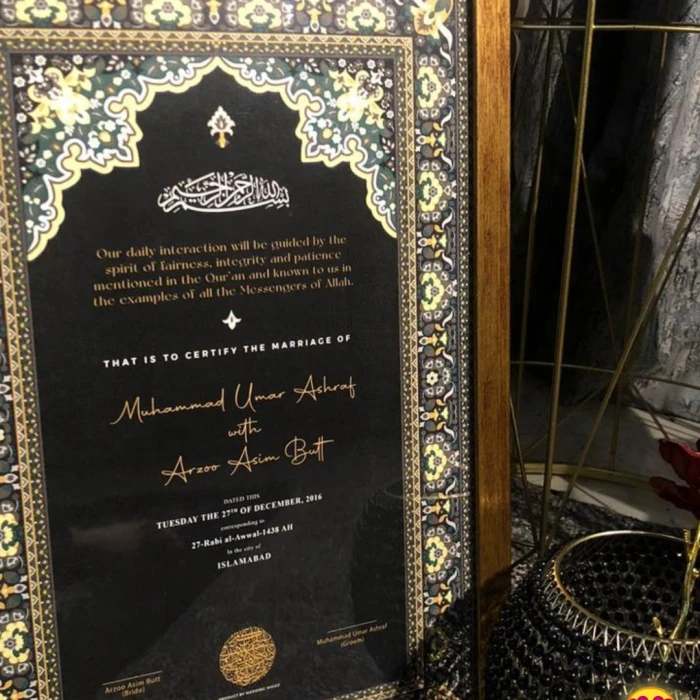 بسم الله الرحمن الرحيم
Our daily interaction will be guided by the
spirit of fairness, integrity and patience
mentioned in the Qur'an and known to us in
the examples of all the Messengers of Allah.
THAT IS TO CERTIFY THE MARRIAGE OF
Muhammad Umar Ashraf
with
Arzoo Asim Butt
DATED THIS
TUESDAY THE 27TH OF DECEMBER, 2016
corresponding to
27-Rabi al-Awwal-1438 AH
In the city of
ISLAMABAD
Muhammad Umar Ashraf
(Groom)
Arzoo Asim Butt
(Bride)